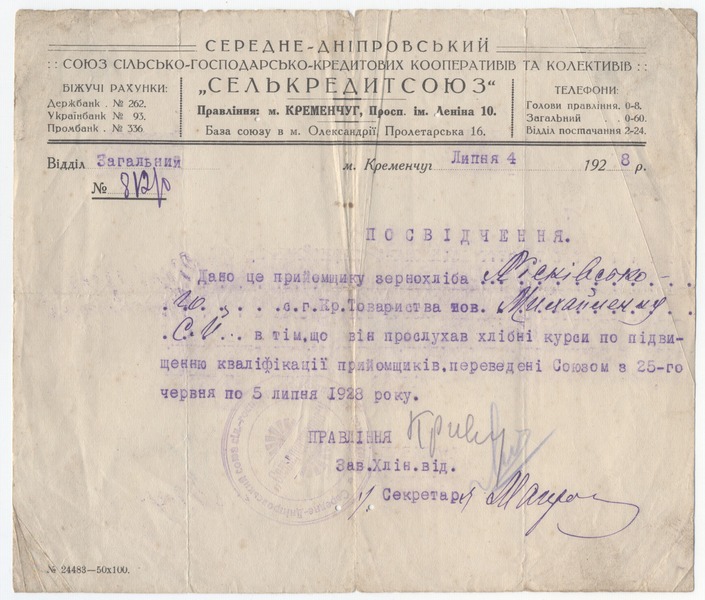 СЕРЕДНЕ-ДНІПРОВСЬКИЙ
:: СОЮЗ СІЛЬСЬКО-ГОСПОДАРСЬКО-КРЕДИТОВИХ КООПЕРАТИВІВ ТА КОЛЕКТИВІВ ::
БІЖУЧІ РАХУНКИ:
Держбанк . № 262.
Українбанк № 93.
Промбанк . № 336
„СЕЛЬКРЕДИТСОЮЗ“
Правління: м. КРЕМЕНЧУГ, Просп. ім. Леніна 10.
База союзу в м. Олександрії, Пролетарська 16.
ТЕЛЕФОНИ:
Голови правління. 0-8.
Загальний . . 0-60.
Відділ постачання 2-24.
Відділ Загальний
м. Кременчуг Липня 4 1928 р.
№
ПОСВІДЧЕННЯ.
Дано це прийомщику зернохліба Пісківсько-
го с.г.Кр.Товариства тов. Михайленку
С. в тім,що він прослухав хлібні курси по підви-
щенню кваліфікації прийомщиків,переведені Союзом з 25-го
червня по 5 липня 1928 року.
ПРАВЛІННЯ
Зав.Хлін.від.
Секретар
№ 24483—50х100.